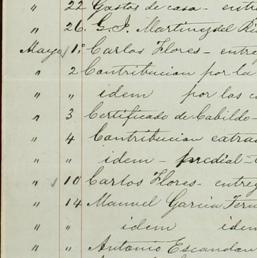 " 22 Gastos de casa - entre
" 26 G. I. Martinez del Ri
Mayo 1º Carlos Flores - entre
" 2 Contribucion por la
" " idem por las c
" 3 Certificado de Cabildo -
" 4 Contribucion extra
" " idem - predial - 
" 10 Carlos Flores - entreg
" 14 Manuel Garcia Teru
" " idem idem
" " Antonio Escandon